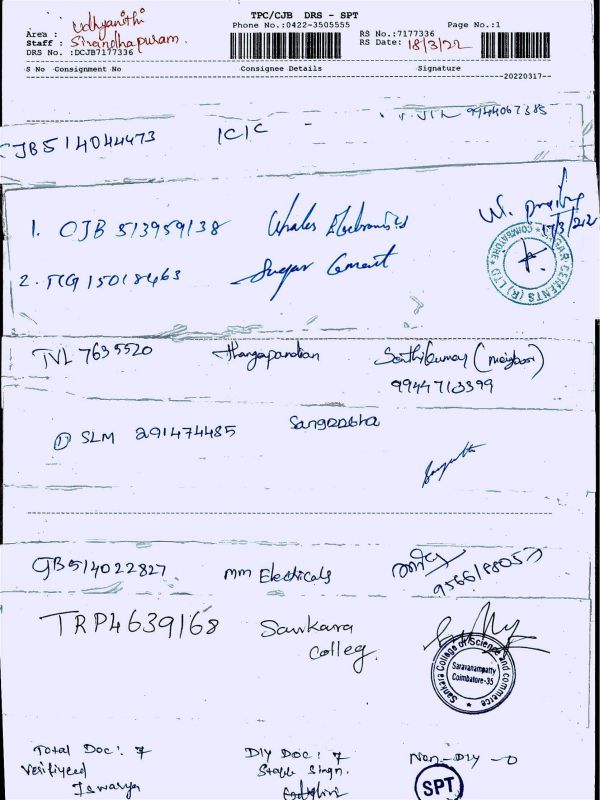 TPC/CJB DRS - SPT
Phone No.:0422-3505555 RS No.:7177336 Page No.:1
Area : Udhyanithi
Staff : Sirandhapuram. RS Date: 18/3/22
DRS No. :DCJB7177336
S No Consignment No Consignee Details Signature
20220317
CJB514044473 ICIC 9944067385
1. CJB 513959138 Whales Electronics
17/3/22
2. TCG 15018463 Sugar Cement
COIMBATORE
TVL 7635520 Thangapandian Senthilkumar (neighbor)
9944713399
① SLM 291474485 Sangeetha
CJB514022827 MM Electricals
TRP4639168 Sankara
Colleg.
Sankara College of Science and commerce
Saravanampatty
Coimbatore-35
Total Doc: 7 Dly Doc: 7 Non-Dly - 0
Verifiyeed Staple Singn.
Iswarya
SPT